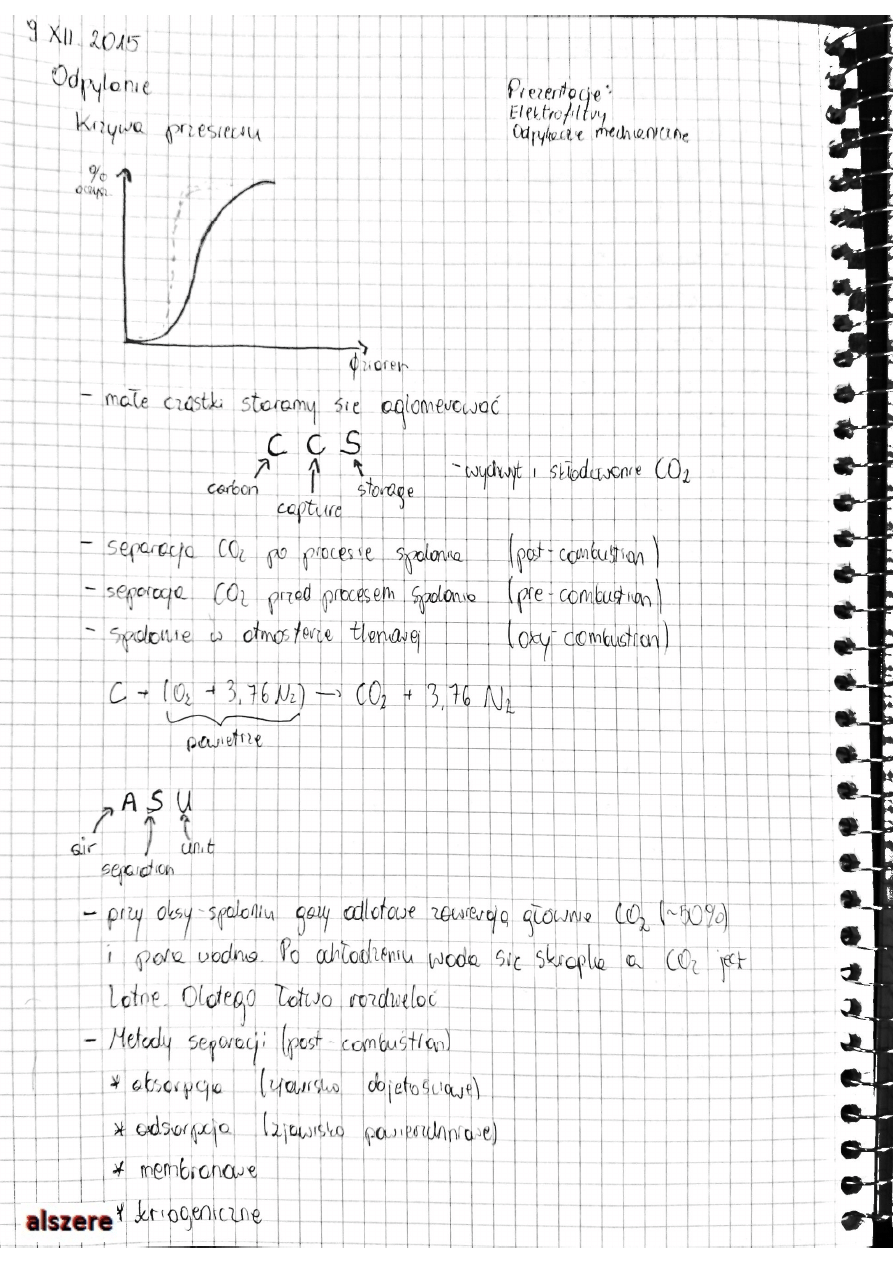 9 XII 2015
Odpylanie
Prezentacje:
Elektrofiltry
Odpylacze mechaniczne
Krzywa przesiewu
%
oczysz.
ϕ ziaren
- małe cząstki staramy się aglomerować
C C S
carbon
capture
storage
- wychwyt i składowanie CO₂
- separacja CO₂ po procesie spalania (post-combustion)
- separacja CO₂ przed procesem spalania (pre-combustion)
- spalanie w atmosferze tlenowej (oxy-combustion)
C + (O₂ + 3,76 N₂) → CO₂ + 3,76 N₂
powietrze
A S U
air
separation
unit
- przy oksy-spalaniu gazy odlotowe zawierają głównie CO₂ (~90%)
i para wodna. Po ochłodzeniu woda się skrapla a CO₂ jest
lotne. Dlatego łatwo rozdzielać
- Metody separacji (post combustion)
* absorpcja (zjawisko objętościowe)
* adsorpcja (zjawisko powierzchniowe)
* membranowe
* kriogeniczne
alszere